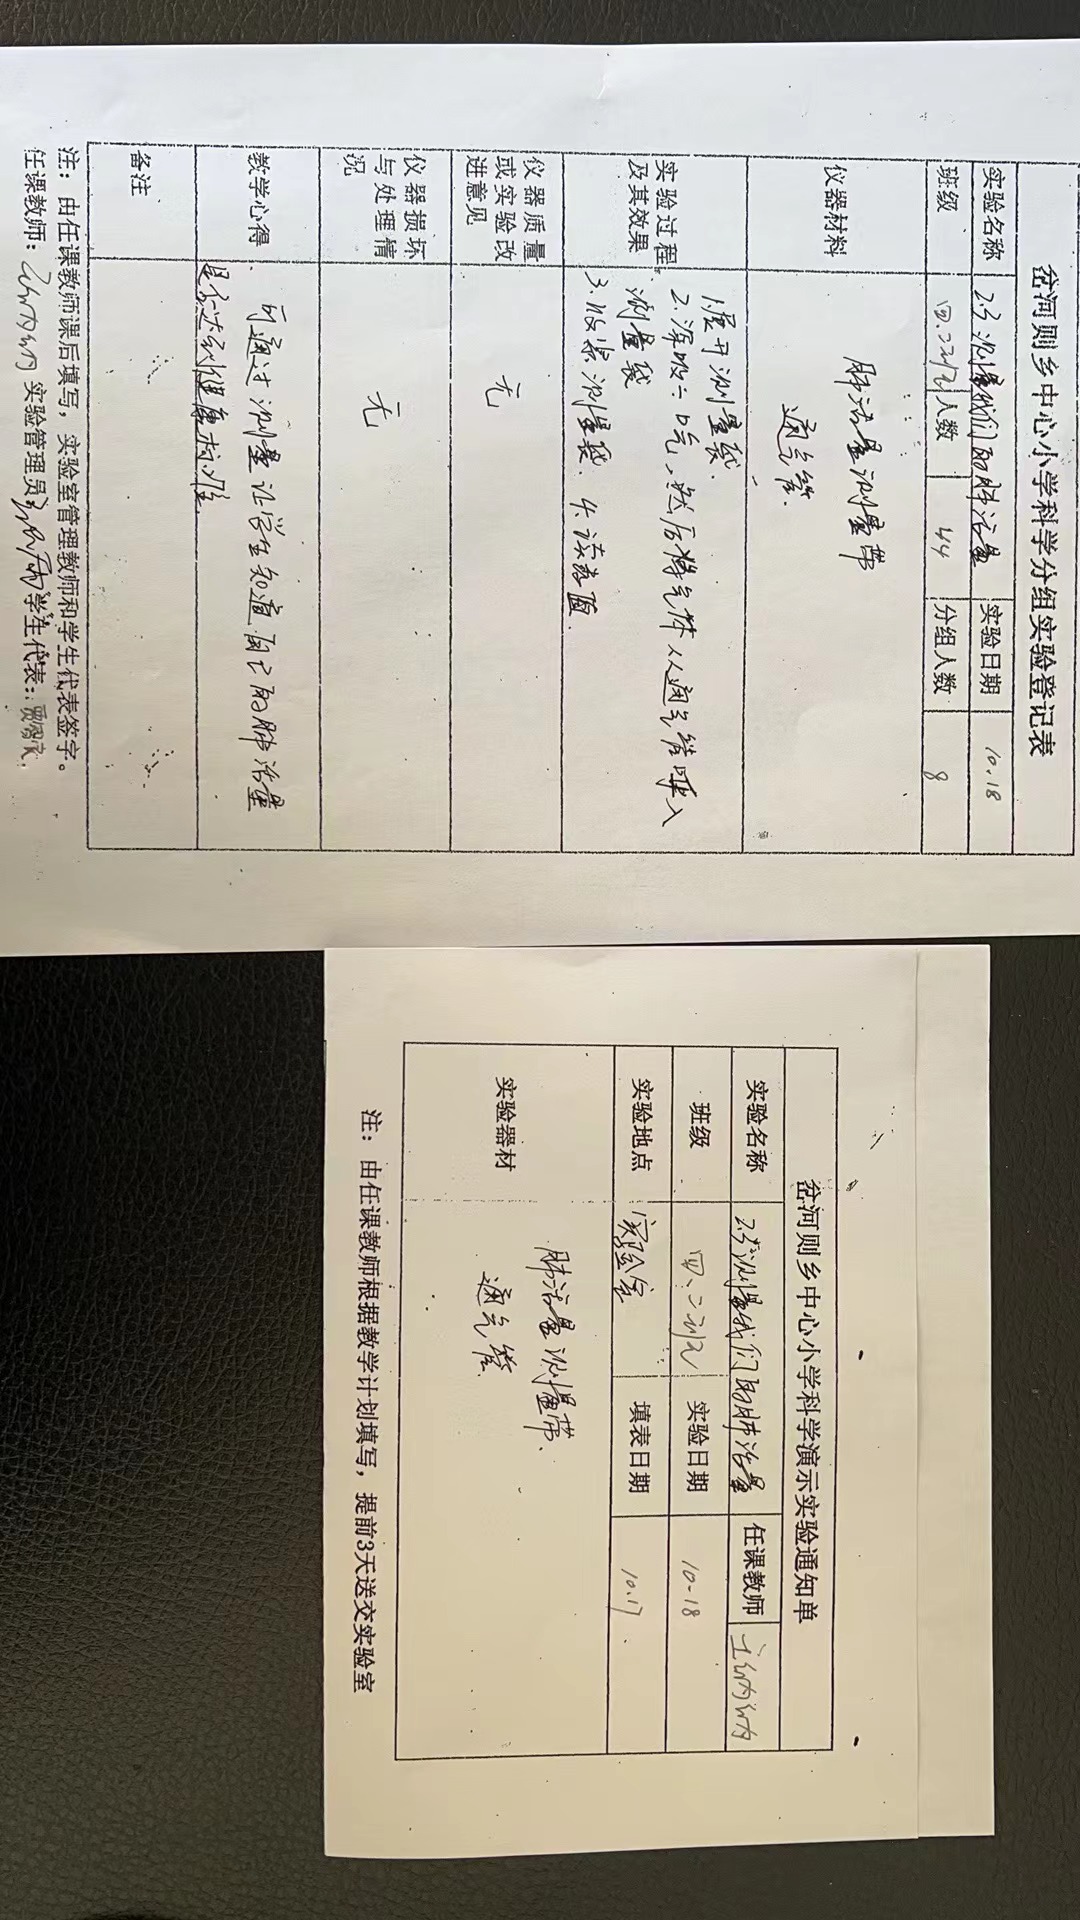 岔河则乡中心小学科学分组实验登记表
实验名称 2.3 测量我们的肺活量 实验日期 10.18
班级 四.二班 人数 44 分组人数 8
仪器材料 肺活量测量带
通气管.
实验过程及其效果 1.展开测量袋.
2.深吸一口气,然后将气体从通气管呼入
测量袋
3.收紧测量袋. 4.读数值.
仪器质量或实验改进意见 无
仪器损坏与处理情况 无
教学心得 可通过测量让学生知道自己的肺活量
是否达到健康标准
备注
注：由任课教师课后填写，实验室管理教师和学生代表签字。
任课教师： 实验管理员： 学生代表：
岔河则乡中心小学科学演示实验通知单
实验名称 2.3测量我们的肺活量 任课教师
班级 四.二班 实验日期 10-18
实验地点 实验室 填表日期 10.17
实验器材 肺活量测量带、
通气管.
注：由任课教师根据教学计划填写，提前3天送交实验室